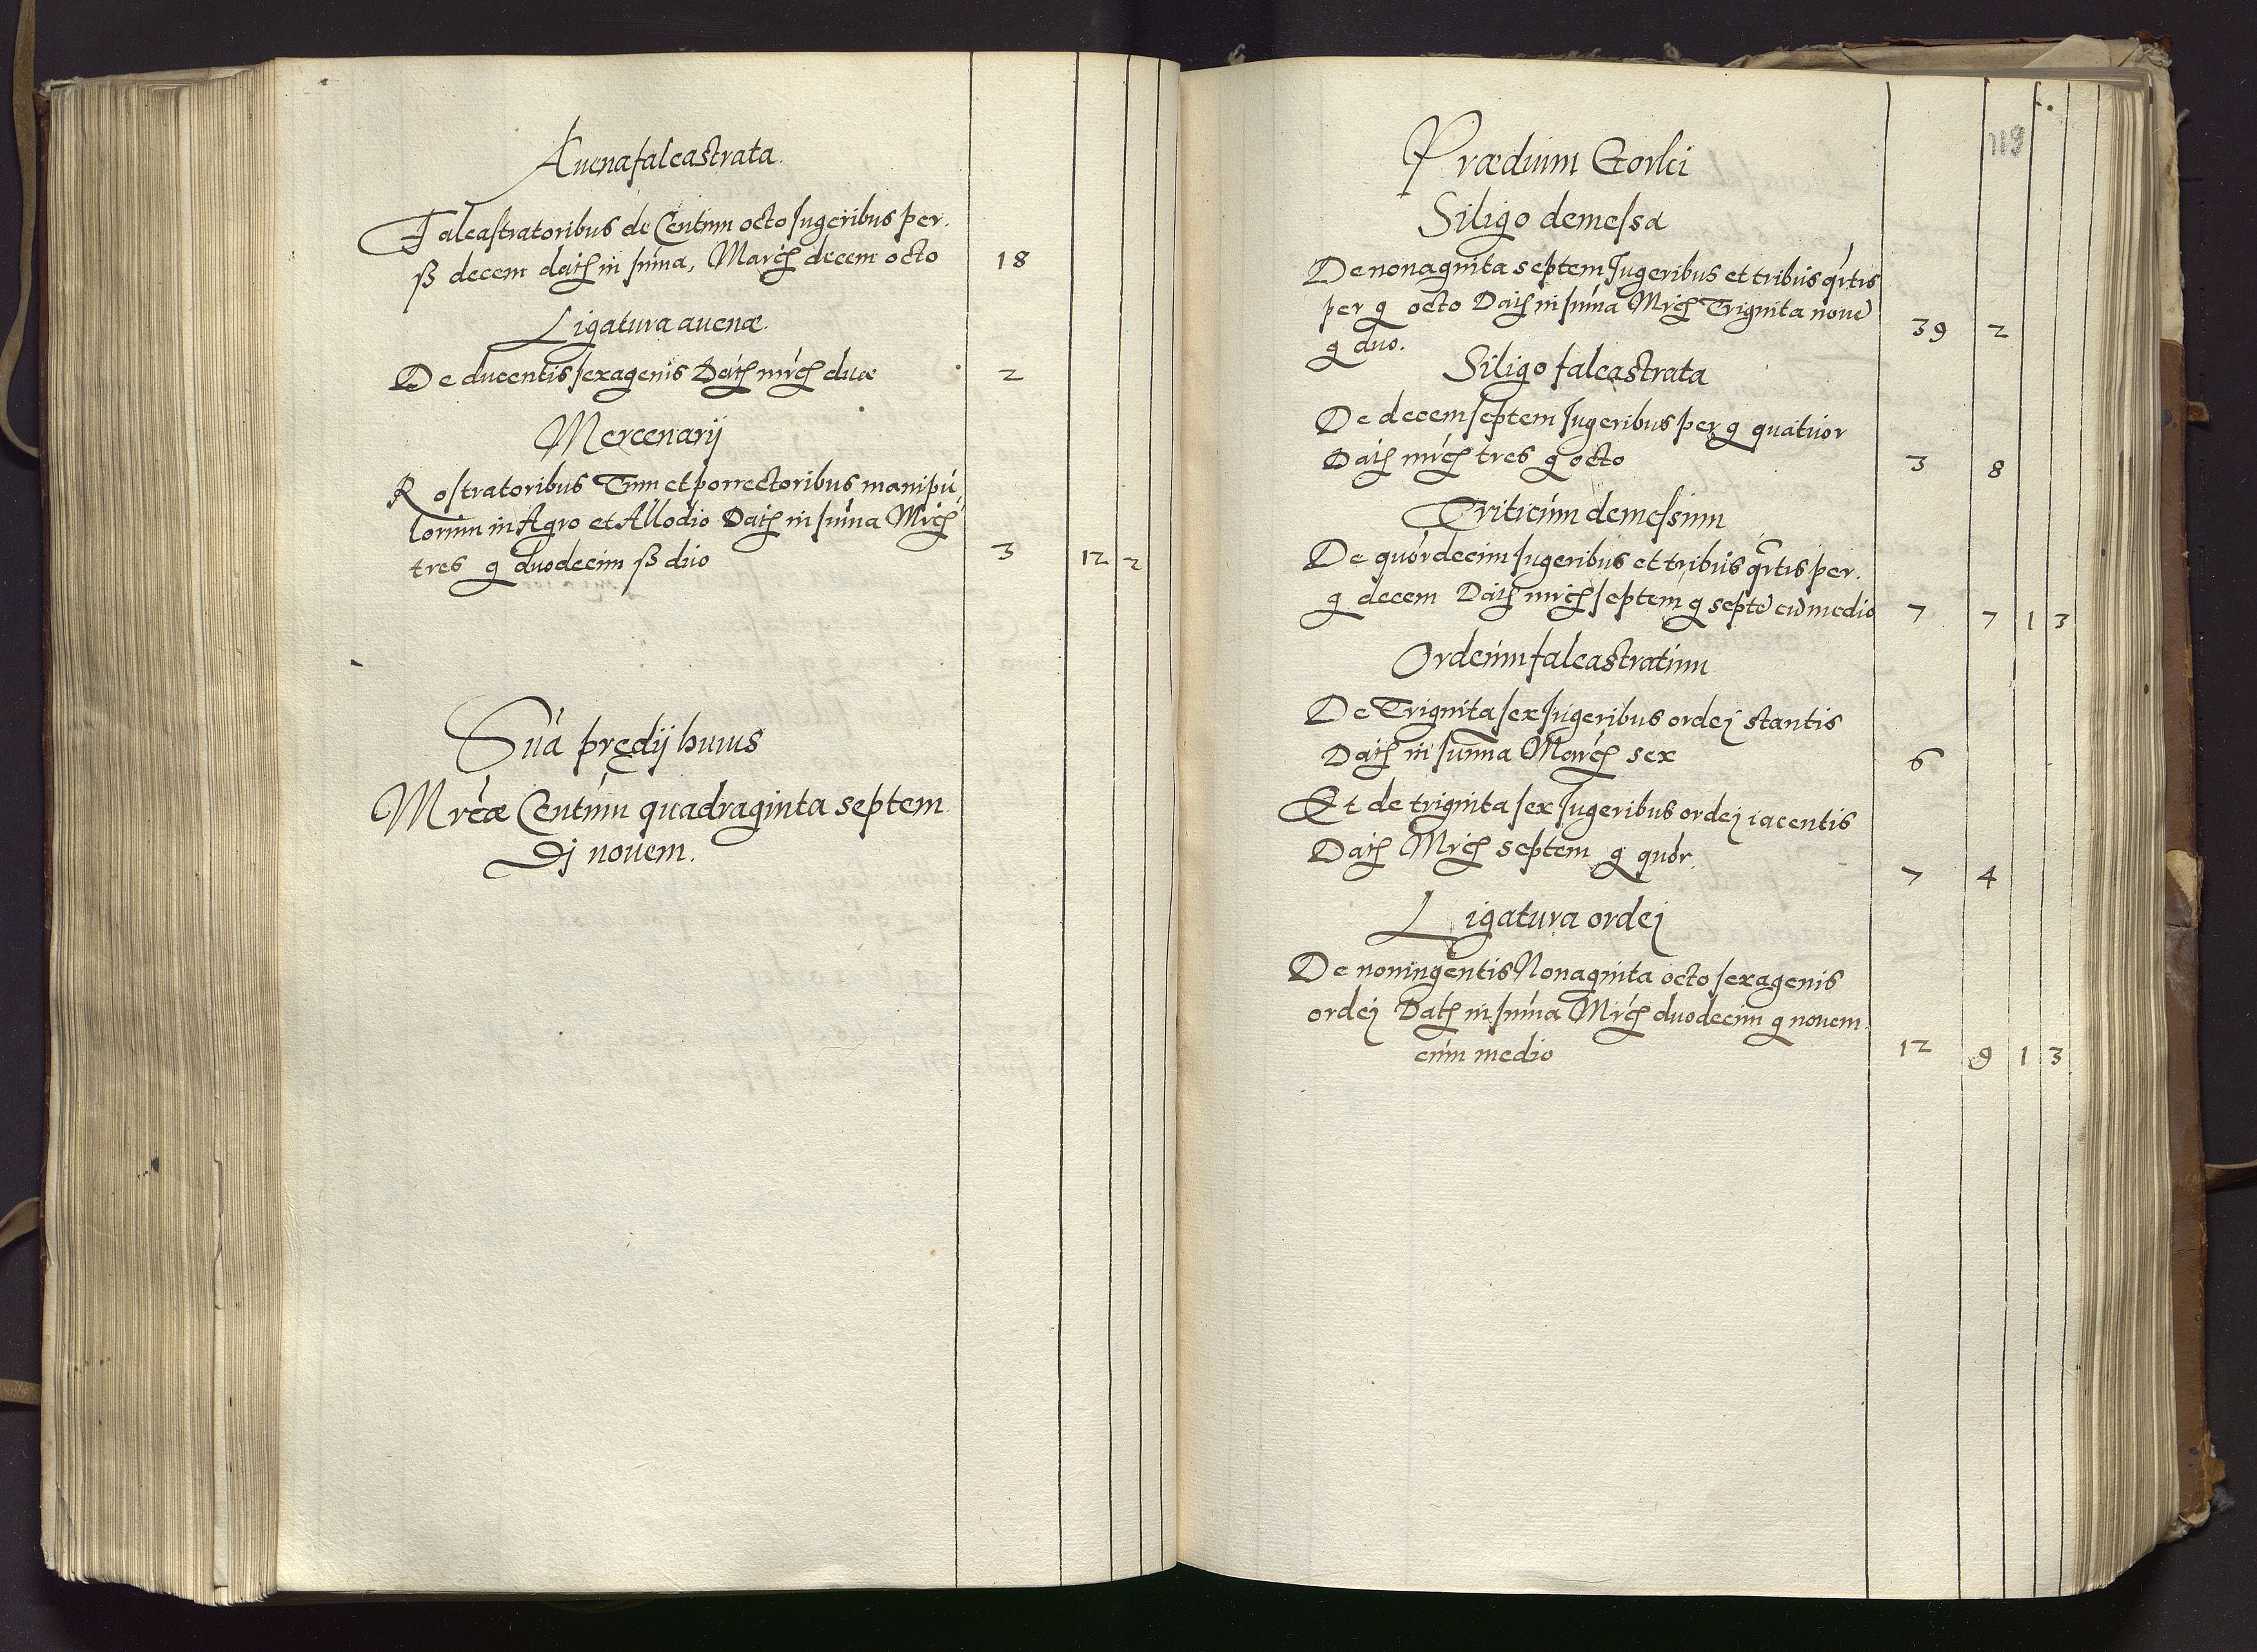 Auena falcastrata.
Falcastratoribus de Centum octo Iugeribus per.
ß decem datħ in sum̄a, Marcħ decem octo 18
Ligatura auenæ.
De ducentis sexagenis Datħ mrcħ duæ 2
Mercenarij
Rostratoribus Tum et porrectoribus manipu
lorum in Agro et Allodio Datħ in sum̄a Mrcħ
tres g duodecim ß duo 3 12 2
Sūa prędij huius
Mrcæ Centum quadraginta septem
Dj nouem.
118
Prædium Gorki
Siligo demessa
De nonaginta septem Iugeribus et tribus qrtis
per g octo Datħ in sum̄a Mrcħ Triginta noue
g duo. 39 2
Siligo falcastrata
De decem septem Iugeribus per g quatuor
Datħ mrcħ tres g octo 3 8
Triticum demessum
De quordecim Iugeribus et tribus qrtis per.
g decem Datħ mrcħ septem g septe cu medio 7 7 1 3
Ordeum falcastratum
De Triginta sex Iugeribus ordej stantis
Datħ in summa Marcħ sex 6
Et de triginta sex Iugeribus ordej iacentis
Datħ Mrcħ septem g quor 7 4
Ligatura ordej
De noningentis Nonaginta octo sexagenis
ordej Datħ in sum̄a Mrcħ duodecim g nouem.
cum medio 12 9 1 3